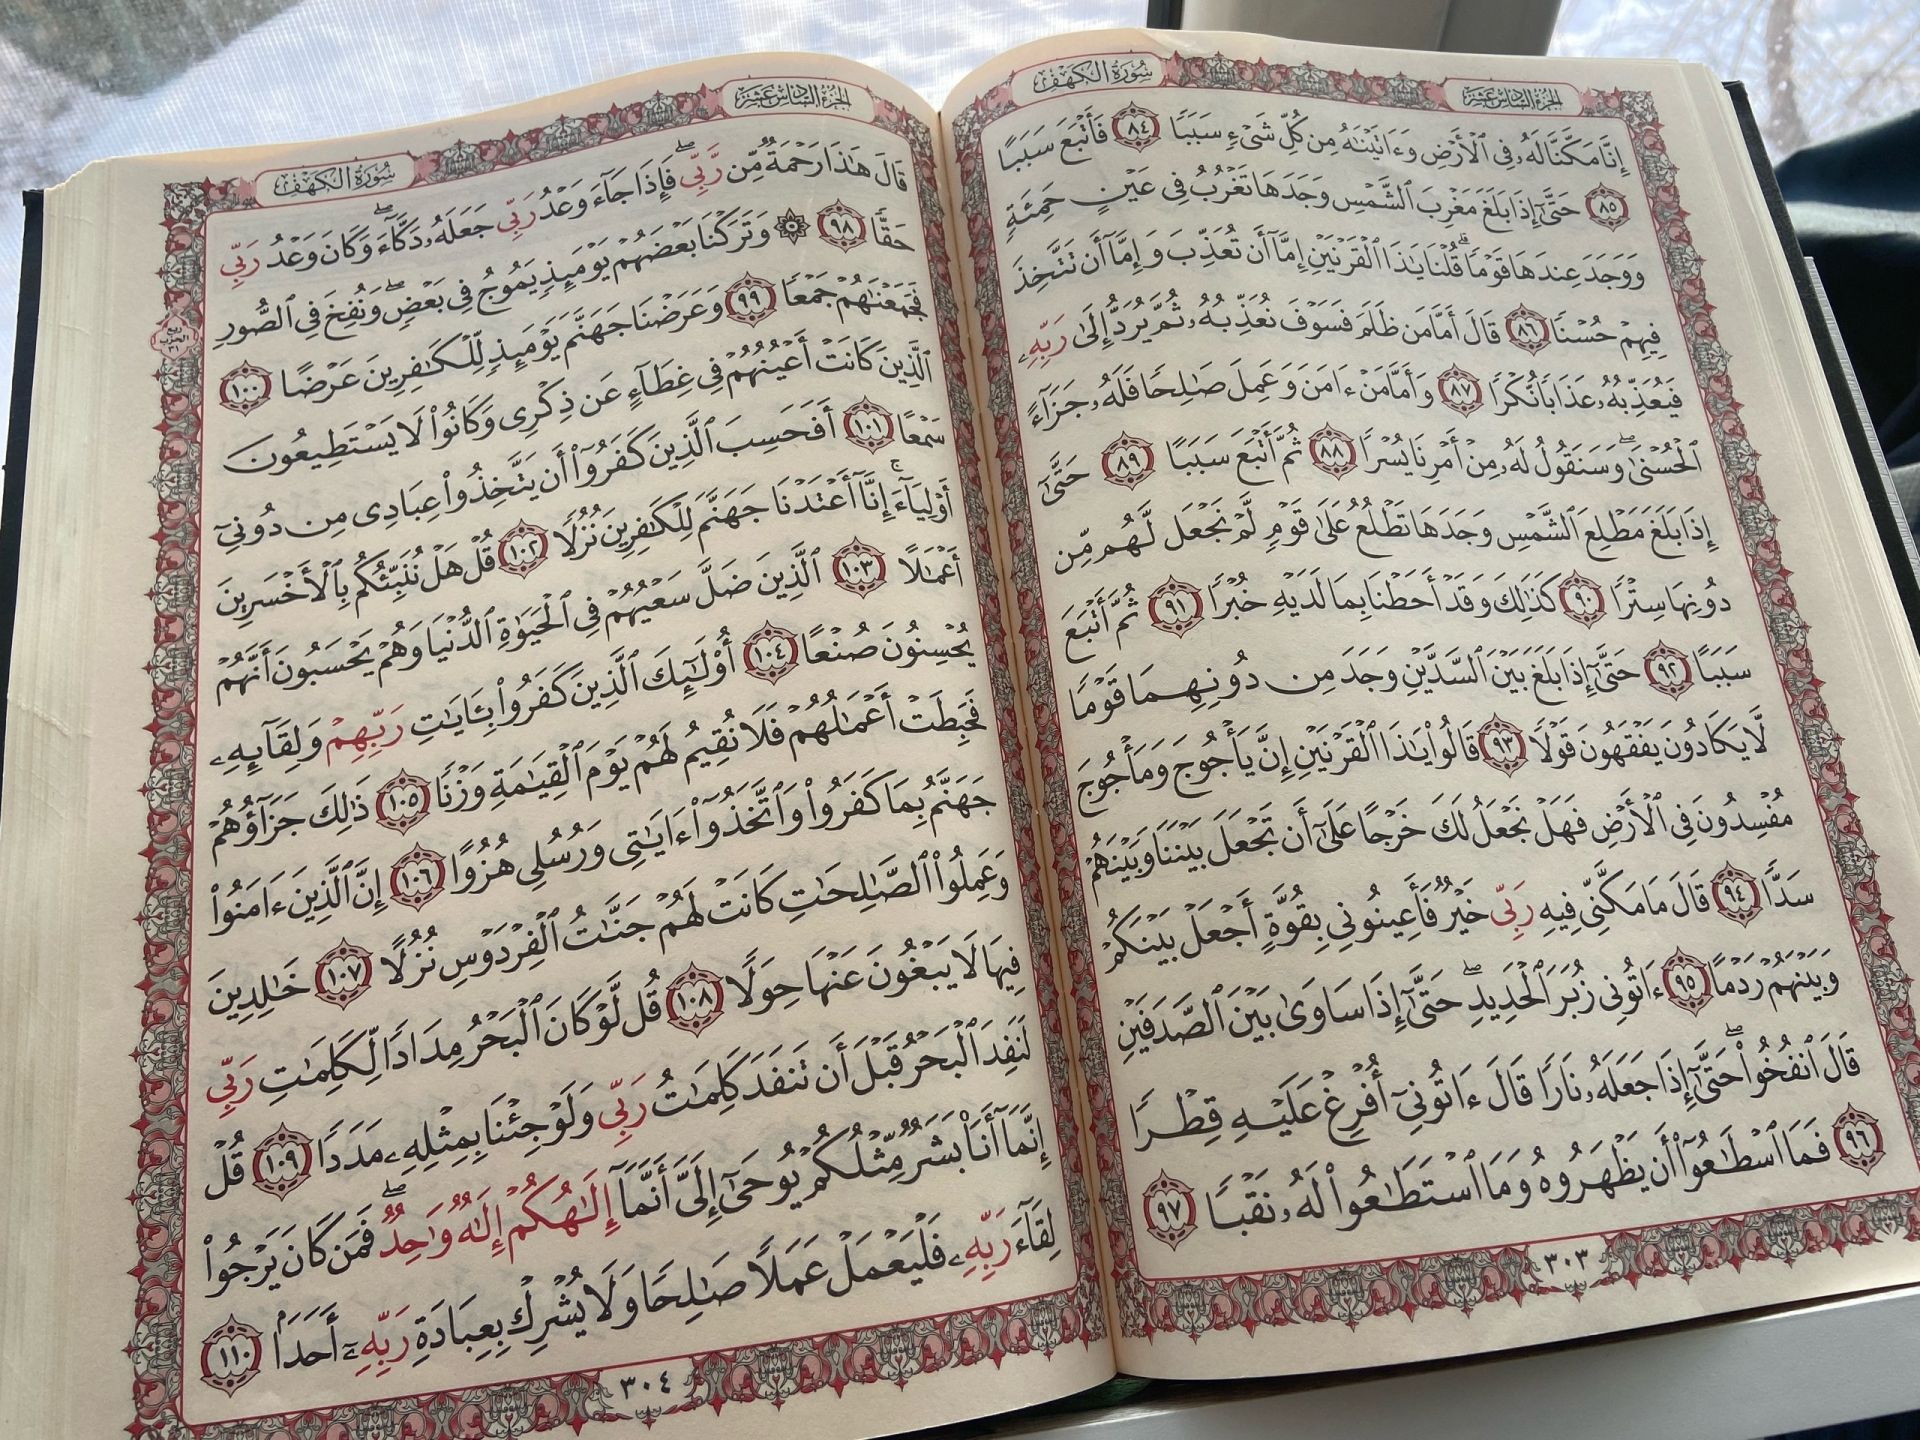 سُورَةُ الكَهْفِ
الجُزْءُ السَّادِسَ عَشَرَ
إِنَّا مَكَّنَّا لَهُۥ فِى ٱلْأَرْضِ وَءَاتَيْنَٰهُ مِن كُلِّ شَىْءٍ سَبَبًا ٨٤ فَأَتْبَعَ سَبَبًا
٨٥ حَتَّىٰٓ إِذَا بَلَغَ مَغْرِبَ ٱلشَّمْسِ وَجَدَهَا تَغْرُبُ فِى عَيْنٍ حَمِئَةٍ
وَوَجَدَ عِندَهَا قَوْمًاۗ قُلْنَا يَٰذَا ٱلْقَرْنَيْنِ إِمَّآ أَن تُعَذِّبَ وَإِمَّآ أَن تَتَّخِذَ
فِيهِمْ حُسْنًا ٨٦ قَالَ أَمَّا مَن ظَلَمَ فَسَوْفَ نُعَذِّبُهُۥ ثُمَّ يُرَدُّ إِلَىٰ رَبِّهِۦ
فَيُعَذِّبُهُۥ عَذَابًا نُّكْرًا ٨٧ وَأَمَّا مَنْ ءَامَنَ وَعَمِلَ صَٰلِحًا فَلَهُۥ جَزَآءً
ٱلْحُسْنَىٰۖ وَسَنَقُولُ لَهُۥ مِنْ أَمْرِنَا يُسْرًا ٨٨ ثُمَّ أَتْبَعَ سَبَبًا ٨٩ حَتَّىٰٓ
إِذَا بَلَغَ مَطْلِعَ ٱلشَّمْسِ وَجَدَهَا تَطْلُعُ عَلَىٰ قَوْمٍ لَّمْ نَجْعَل لَّهُم مِّن
دُونِهَا سِتْرًا ٩٠ كَذَٰلِكَ وَقَدْ أَحَطْنَا بِمَا لَدَيْهِ خُبْرًا ٩١ ثُمَّ أَتْبَعَ
سَبَبًا ٩٢ حَتَّىٰٓ إِذَا بَلَغَ بَيْنَ ٱلسَّدَّيْنِ وَجَدَ مِن دُونِهِمَا قَوْمًا
لَّا يَكَادُونَ يَفْقَهُونَ قَوْلًا ٩٣ قَالُوا۟ يَٰذَا ٱلْقَرْنَيْنِ إِنَّ يَأْجُوجَ وَمَأْجُوجَ
مُفْسِدُونَ فِى ٱلْأَرْضِ فَهَلْ نَجْعَلُ لَكَ خَرْجًا عَلَىٰٓ أَن تَجْعَلَ بَيْنَنَا وَبَيْنَهُمْ
سَدًّا ٩٤ قَالَ مَا مَكَّنِّى فِيهِ رَبِّى خَيْرٌ فَأَعِينُونِى بِقُوَّةٍ أَجْعَلْ بَيْنَكُمْ
وَبَيْنَهُمْ رَدْمًا ٩٥ ءَاتُونِى زُبَرَ ٱلْحَدِيدِۖ حَتَّىٰٓ إِذَا سَاوَىٰ بَيْنَ ٱلصَّدَفَيْنِ
قَالَ ٱنفُخُوا۟ۖ حَتَّىٰٓ إِذَا جَعَلَهُۥ نَارًا قَالَ ءَاتُونِىٓ أُفْرِغْ عَلَيْهِ قِطْرًا
٩٦ فَمَا ٱسْطَٰعُوٓا۟ أَن يَظْهَرُوهُ وَمَا ٱسْتَطَٰعُوا۟ لَهُۥ نَقْبًا ٩٧
٣٠٣
الجُزْءُ السَّادِسَ عَشَرَ
سُورَةُ الكَهْفِ
قَالَ هَٰذَا رَحْمَةٌ مِّن رَّبِّىۖ فَإِذَا جَآءَ وَعْدُ رَبِّى جَعَلَهُۥ دَكَّآءَۖ وَكَانَ وَعْدُ رَبِّى
حَقًّا ٩٨ ۞ وَتَرَكْنَا بَعْضَهُمْ يَوْمَئِذٍ يَمُوجُ فِى بَعْضٍۖ وَنُفِخَ فِى ٱلصُّورِ
فَجَمَعْنَٰهُمْ جَمْعًا ٩٩ وَعَرَضْنَا جَهَنَّمَ يَوْمَئِذٍ لِّلْكَٰفِرِينَ عَرْضًا ١٠٠
ربع الحزب ٣١
ٱلَّذِينَ كَانَتْ أَعْيُنُهُمْ فِى غِطَآءٍ عَن ذِكْرِى وَكَانُوا۟ لَا يَسْتَطِيعُونَ
سَمْعًا ١٠١ أَفَحَسِبَ ٱلَّذِينَ كَفَرُوٓا۟ أَن يَتَّخِذُوا۟ عِبَادِى مِن دُونِىٓ
أَوْلِيَآءَۚ إِنَّآ أَعْتَدْنَا جَهَنَّمَ لِلْكَٰفِرِينَ نُزُلًا ١٠٢ قُلْ هَلْ نُنَبِّئُكُم بِٱلْأَخْسَرِينَ
أَعْمَٰلًا ١٠٣ ٱلَّذِينَ ضَلَّ سَعْيُهُمْ فِى ٱلْحَيَوٰةِ ٱلدُّنْيَا وَهُمْ يَحْسَبُونَ أَنَّهُمْ
يُحْسِنُونَ صُنْعًا ١٠٤ أُو۟لَٰٓئِكَ ٱلَّذِينَ كَفَرُوا۟ بِـَٔايَٰتِ رَبِّهِمْ وَلِقَآئِهِۦ
فَحَبِطَتْ أَعْمَٰلُهُمْ فَلَا نُقِيمُ لَهُمْ يَوْمَ ٱلْقِيَٰمَةِ وَزْنًا ١٠٥ ذَٰلِكَ جَزَآؤُهُمْ
جَهَنَّمُ بِمَا كَفَرُوا۟ وَٱتَّخَذُوٓا۟ ءَايَٰتِى وَرُسُلِى هُزُوًا ١٠٦ إِنَّ ٱلَّذِينَ ءَامَنُوا۟
وَعَمِلُوا۟ ٱلصَّٰلِحَٰتِ كَانَتْ لَهُمْ جَنَّٰتُ ٱلْفِرْدَوْسِ نُزُلًا ١٠٧ خَٰلِدِينَ
فِيهَا لَا يَبْغُونَ عَنْهَا حِوَلًا ١٠٨ قُل لَّوْ كَانَ ٱلْبَحْرُ مِدَادًا لِّكَلِمَٰتِ رَبِّى
لَنَفِدَ ٱلْبَحْرُ قَبْلَ أَن تَنفَدَ كَلِمَٰتُ رَبِّى وَلَوْ جِئْنَا بِمِثْلِهِۦ مَدَدًا ١٠٩ قُلْ
إِنَّمَآ أَنَا۠ بَشَرٌ مِّثْلُكُمْ يُوحَىٰٓ إِلَىَّ أَنَّمَآ إِلَٰهُكُمْ إِلَٰهٌ وَٰحِدٌۖ فَمَن كَانَ يَرْجُوا۟
لِقَآءَ رَبِّهِۦ فَلْيَعْمَلْ عَمَلًا صَٰلِحًا وَلَا يُشْرِكْ بِعِبَادَةِ رَبِّهِۦٓ أَحَدًۢا ١١٠
٣٠٤